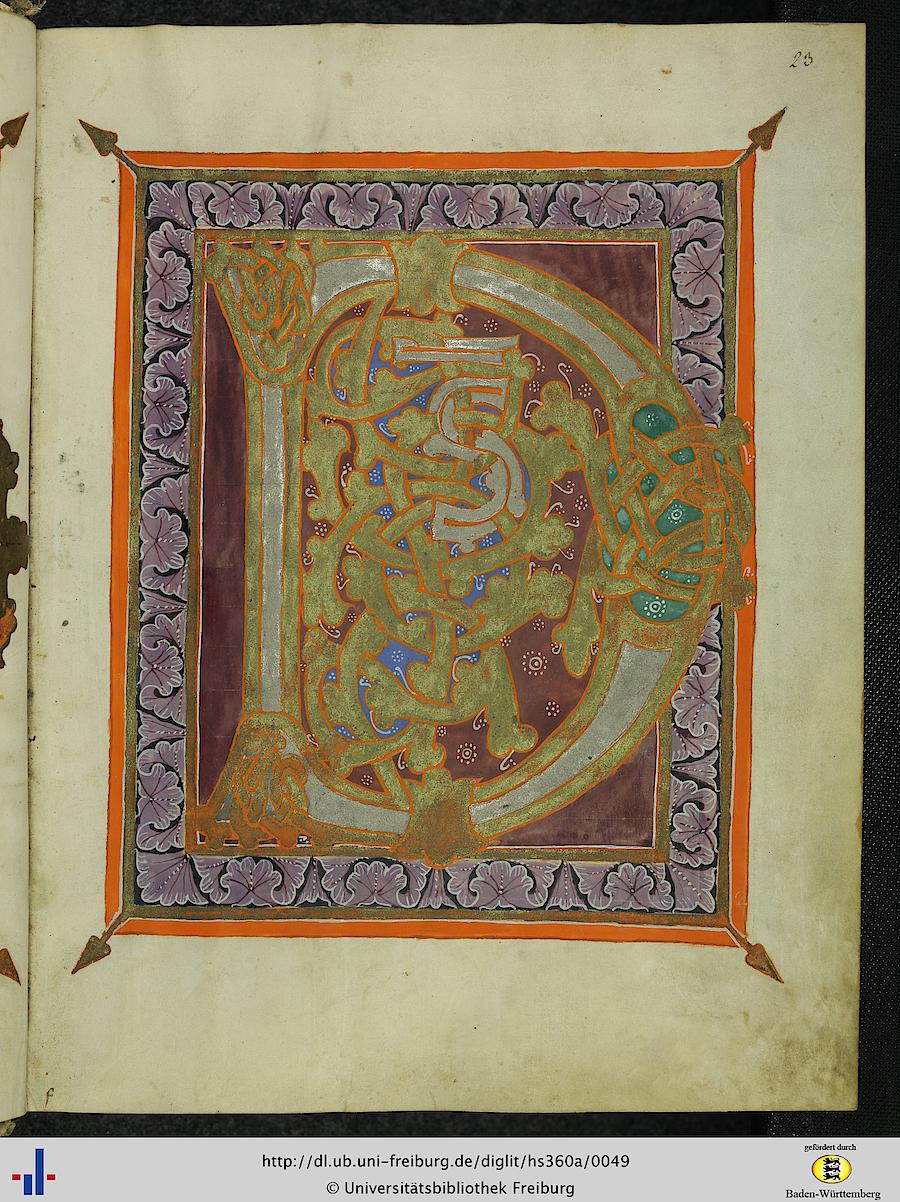 23
D̄S
f
http://dl.ub.uni-freiburg.de/diglit/hs360a/0049
© Universitätsbibliothek Freiburg
gefördert durch
Baden-Württemberg